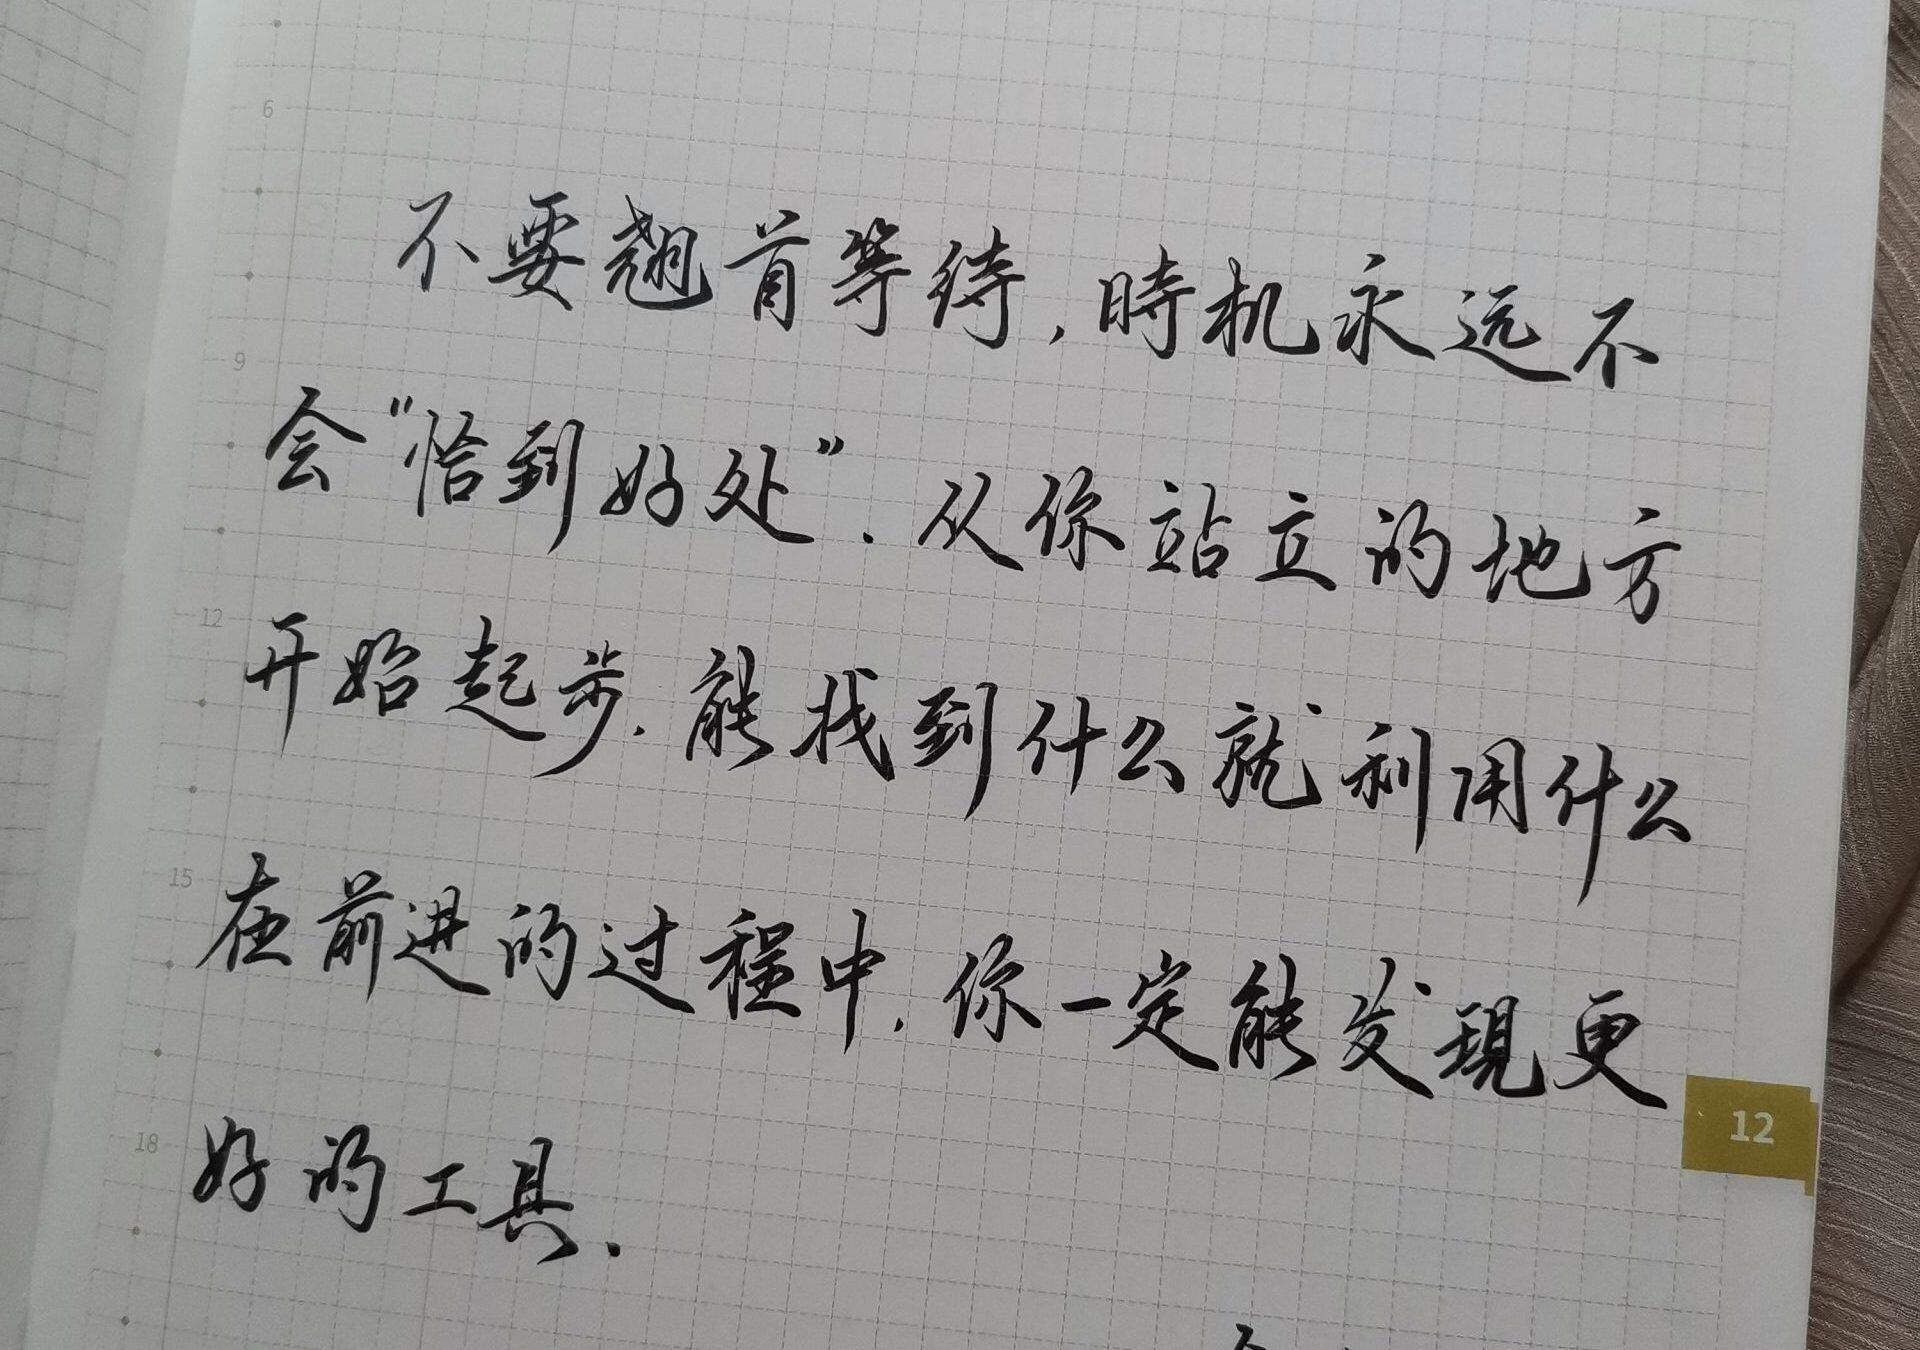 6
不要翘首等待,時机永远不
9
会"恰到好处".从你站立的地方
12
开始起步.能找到什么就利用什么
15
在前进的过程中,你一定能发現更
12
18
好的工具.